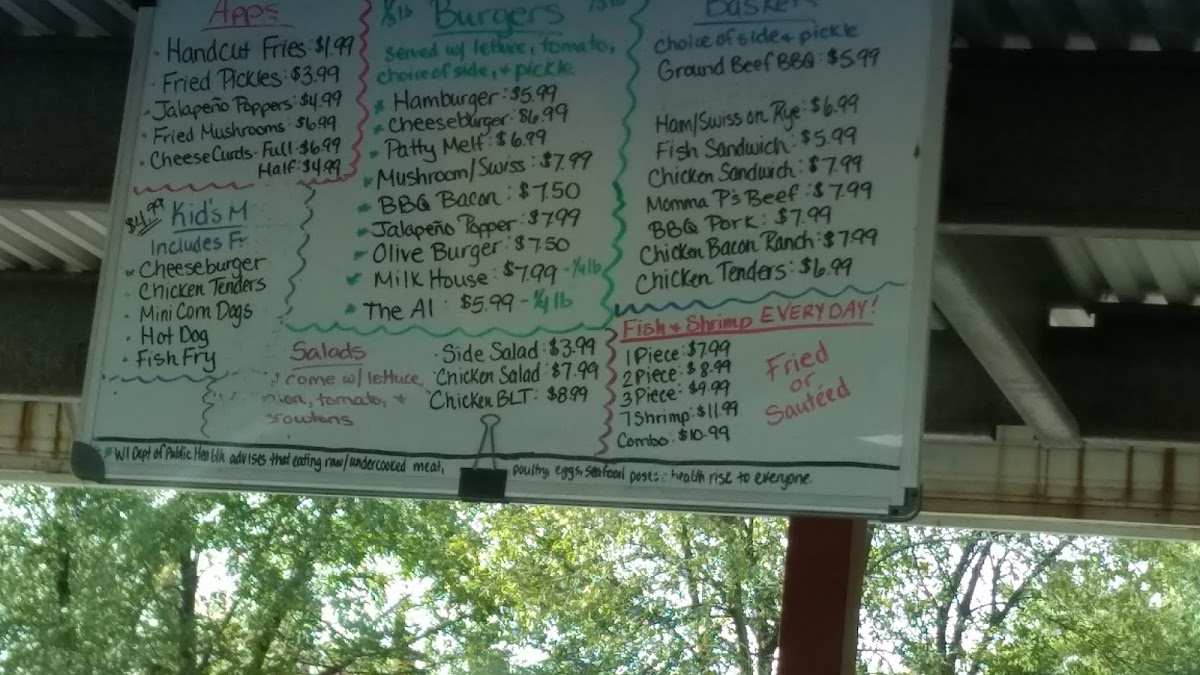 Apps
· Handcut Fries: $1.99
· Fried Pickles: $3.99
· Jalapeño Poppers: $4.99
· Fried Mushrooms: $6.99
· Cheese Curds: Full: $6.99
Half: $4.99
$4.99 Kid's M
Includes Fr
Cheeseburger
· Chicken Tenders
· Mini Corn Dogs
· Hot Dog
· Fish Fry
Burgers
served w/ lettuce, tomato,
choice of side, + pickle
* Hamburger: $5.99
* Cheeseburger: $6.99
* Patty Melt: $6.99
* Mushroom/Swiss: $7.99
* BBQ Bacon: $7.50
* Jalapeño Popper: $7.99
* Olive Burger: $7.50
* Milk House: $7.99 - 1/4 lb
* The Al: $5.99 - 1/4 lb
Basket
choice of side + pickle
Ground Beef BBQ: $5.99
Ham/Swiss on Rye: $6.99
Fish Sandwich: $5.99
Chicken Sandwich: $7.99
Momma P's Beef: $7.99
BBQ Pork: $7.99
Chicken Bacon Ranch: $7.99
Chicken Tenders: $6.99
Salads
come w/ lettuce,
ion, tomato, +
croutons
· Side Salad: $3.99
· Chicken Salad: $7.99
Chicken BLT: $8.99
Fish + Shrimp EVERYDAY!
1 Piece: $7.99
2 Piece: $8.99
3 Piece: $9.99
7 Shrimp: $11.99
Combo: $10.99
Fried
or
Sautéed
* WI Dept of Public Health advises that eating raw/undercooked meat, poultry, eggs, seafood poses health rise to everyone.